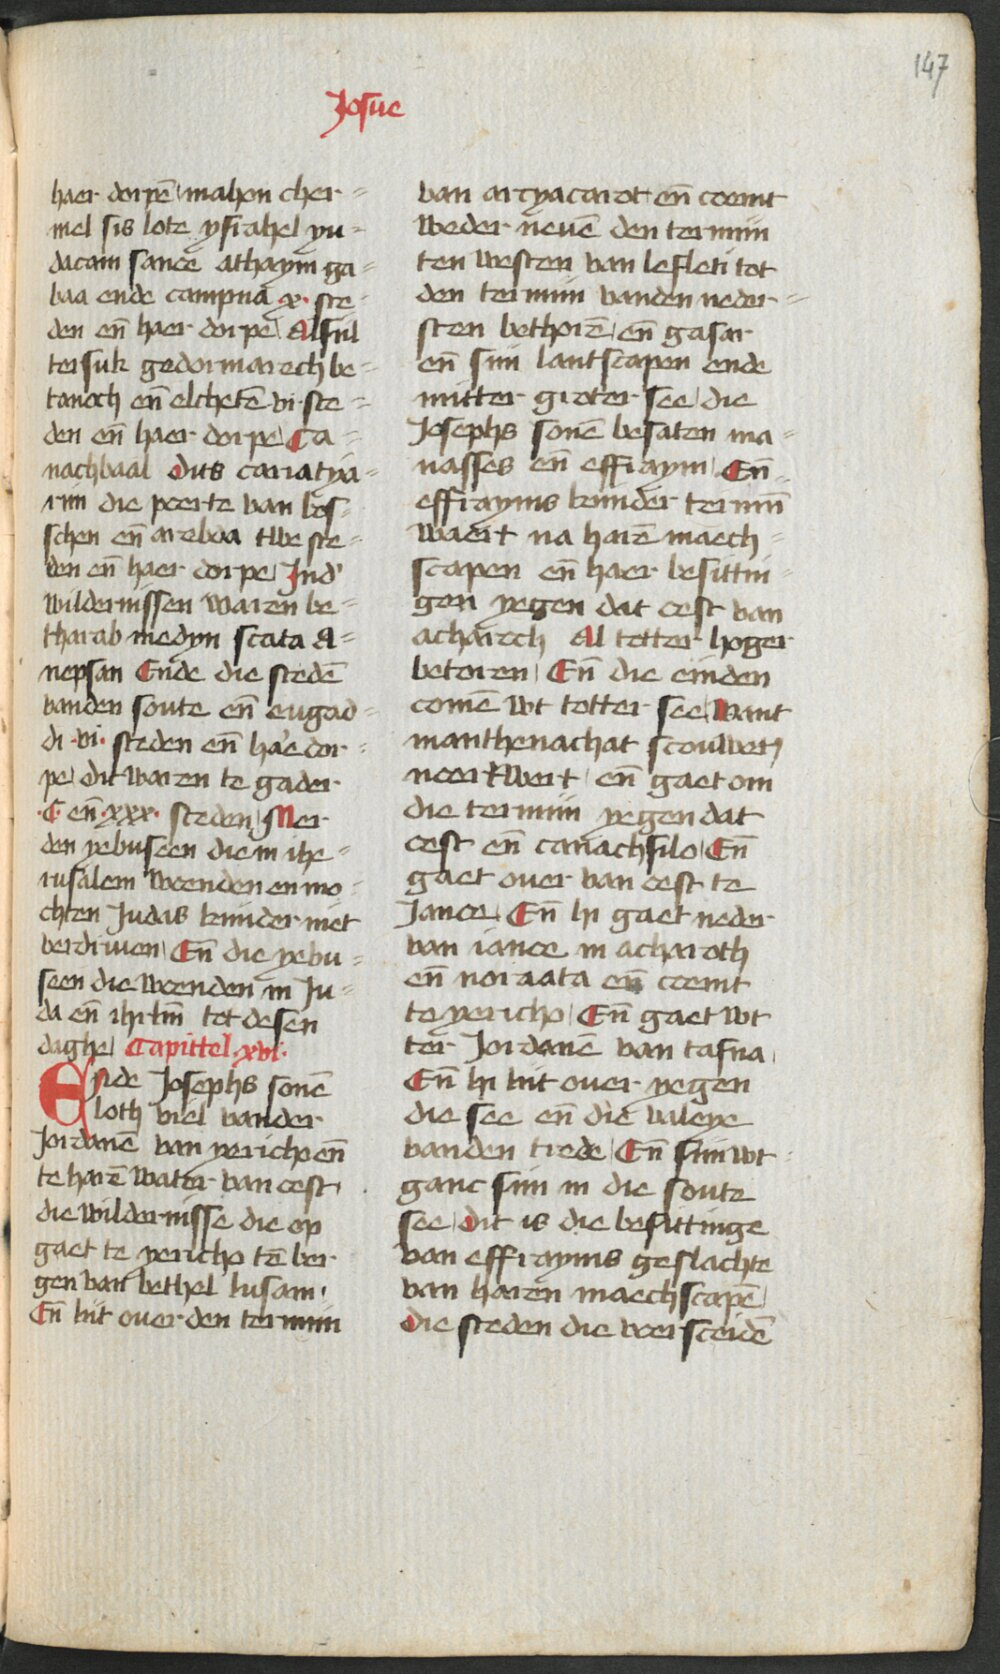 147
Josue
haer dorpē mahon cher=
mel sis lote ysrahel yu=
dacam sanoe athaym ga=
baa ende campna .x. ste=
den en̄ haer dorpe Alsul
tersuk gedormarech be=
tanoth en̄ elthetē .vi. ste=
den en̄ haer dorpe Ca=
nachbaal dits cariatya=
rim die poerte van bos=
schen en̄ areboa twe ste=
den en̄ haer dorpe Ind'
wildernissen waren be=
tharab medyn scata A=
nepsan Ende die stedē
vanden soute en̄ eugad=
di .vi. steden en̄ ha'e dor=
pe dit waren te gader
.C. en̄ .xxx. steden Mer
den yebuseen die in ihe=
rusalem woenden en mo=
chten Judas kinder niet
verdriuen En̄ die yebu=
seen die woenden in Ju=
da en̄ ihrlm̄ tot desen
daghe Capittel .xvi.
Ende Josephs sonē
loth viel vander
Jordanē van yericho en̄
te harē water van oest
die wildernisse die op
gaet te yericho tē ber
gen van bethel lusam
En̄ hit ouer den termiin
van artyacarot en̄ coemt
weder neuē den termiin
ten westen van lefleti tot
den termiin vanden neder=
sten bethorē en̄ gasar
en̄ siin lantscapen ende
mitter groter see die
Josephs sonē besaten ma=
nasses en̄ effraym En̄
effrayms kinder termiin
waert na harē maech=
scapen en̄ haer besittin=
gen yegen dat oest van
acharech Al totter hoger
betoren En̄ die einden
comē wt totter see want
manthenachat scouwet
noertwert en̄ gaet om
die termiin yegen dat
oest en̄ canachsilo En̄
gaet ouer van oest te
Janoe En̄ hi gaet neder
van ianoe in acharoth
en̄ noraata en̄ coemt
te yericho En̄ gaet wt
ter Jordanē van tafna
En̄ hi hit ouer yegen
die see en̄ die valeye
vanden trede En̄ siin wt=
ganc siin in die soute
see dit is die besittinge
van effrayms geslachte
van haren maechscapē
die steden die wersceidē